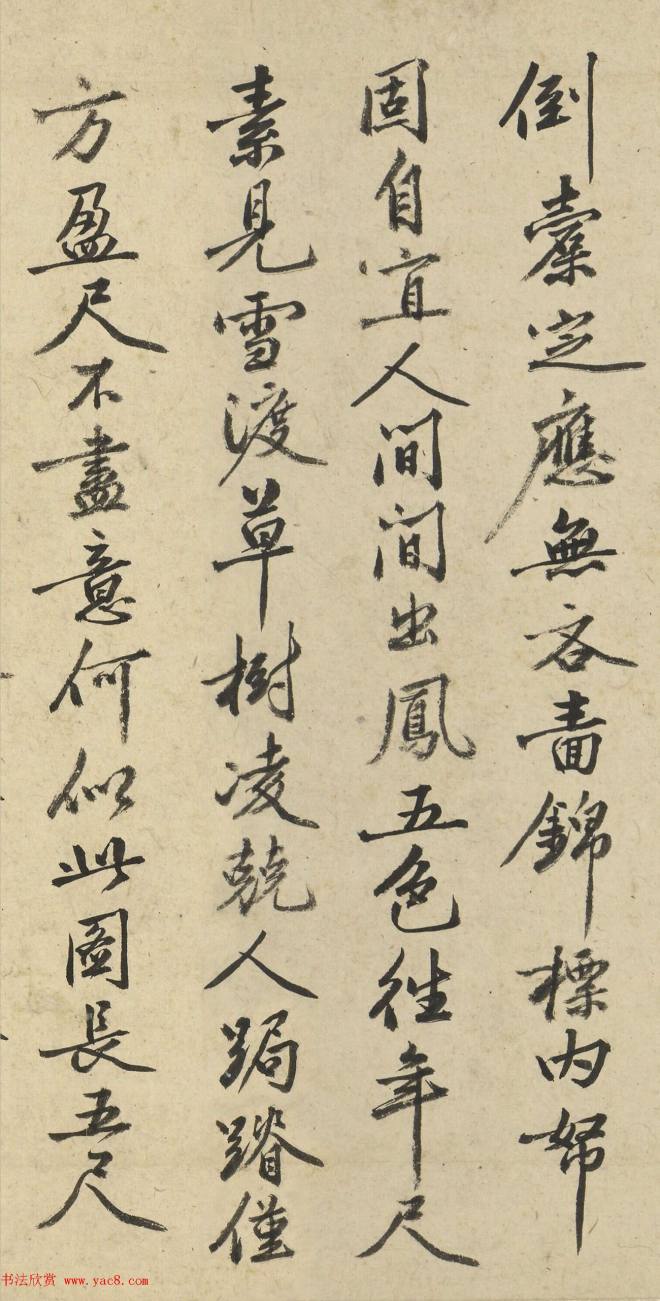 倒橐定應無吝嗇錦標内帑
固自宜人間間出鳳五色往年尺
素見雪渡草樹凌兢人跼蹐僅
方盈尺不盡意何似此圖長五尺
书法欣赏 www.yac8.com